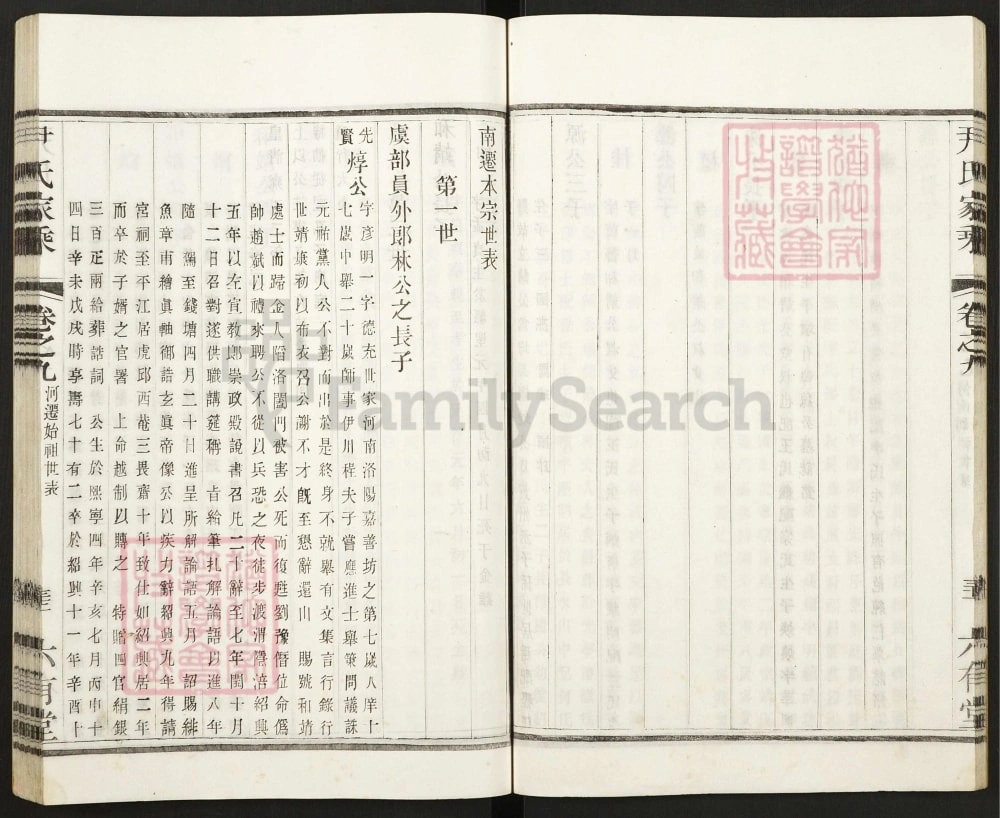 尹氏家乘
卷之九
六有堂
南遷本宗世表
第一世
虞部員外郎林公之長子
先賢焞公
字彥明一字德充世家河南洛陽嘉善坊之第七歲入庠十
七歲中舉二十歲師事伊川程夫子嘗應進士舉策問議誅
元祐黨人公不對而出於是終身不就舉有文集言行錄行
世靖康初以布衣召公謝不才既至懇辭還山 賜號和靖
處士而歸金人陷洛闔門被害公死而復甦劉豫僭位命偽
帥趙斌以禮來聘公不從以兵恐之夜徒步渡渭潛涪紹興
五年以左宣教郎崇政殿說書召凡二十辭至七年閏十月
十二日召對遂供職講筵稱 旨給筆札解論語以進八年
隨 駕至錢塘四月二十日進呈所解論語五月 詔賜緋
魚章甫繪真軸御誥玄真帝像公以疾力辭紹興九年得請
宮祠至平江居虎邱西菴三畏齋十年致仕如紹興居二年
而卒於子婿之官署 上命越制以賻之 特贈四官絹銀
三百疋兩給葬誥詞 公生於熙寧四年辛亥七月丙申十
四日辛未戊戌時享壽七十有二卒於紹興十一年辛酉十
尹氏家乘
卷之九
河遷始祖世表
六有堂
猶他家譜學會特藏
猶他家譜學會特藏
FamilySearch